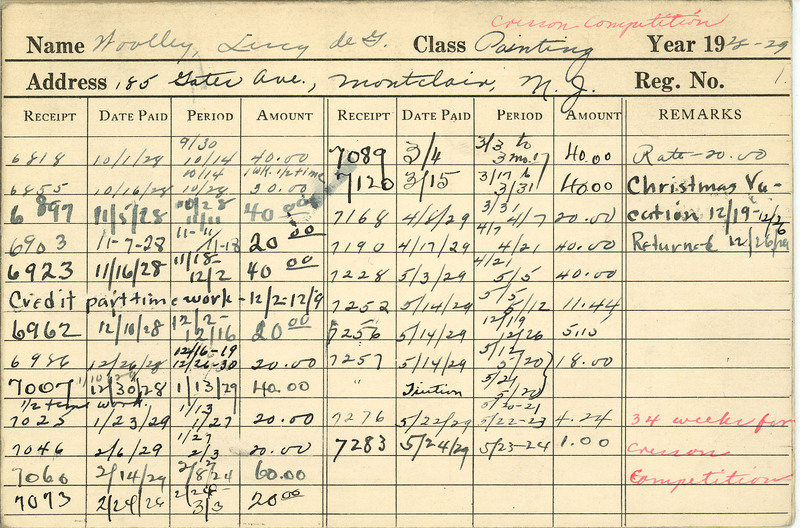 Cresson Competition
Name Woolley, Lucy de G. Class Painting Year 1928-29
Address 185 Gates Ave., Montclair, N. J. Reg. No. 1
RECEIPT DATE PAID PERIOD AMOUNT RECEIPT DATE PAID PERIOD AMOUNT REMARKS
6818 10/1/28 9/30 10/14 40.00 7089 3/4 3/3 to 3/17 40.00 Rate-20.00
6855 10/16/28 10/14 10/28 1 wk. 1/2 time 30.00 7120 3/15 3/17 to 3/31 4000 Christmas Va-
6897 11/5/28 10/28 11/11 40 00 7168 4/8/29 3/31 4/7 20.00 cation 12/19-12/26
6903 11-7-28 11-11 11-18 20 00 7190 4/17/29 4/7 4/21 40.00 Returned 12/26/28
6923 11/16/28 11/18- 12/2 40 00 7228 5/3/29 4/21 5/5 40.00
Credit part time work-12/2-12/9 7252 5/14/29 5/5 5/12 11.44
6962 12/10/28 12/2- 12/16 20 00 7256 5/14/29 12/19 12/26 5.10
6986 12/26/28 12/16-19 12/26-30 20.00 7257 5/14/29 5/12 5/20 18.00
7007 12/30/28 1/13/29 40.00 " Tuition 5/21 5/20
1/2 time work.
7025 1/23/29 1/13 1/27 20.00 7276 5/22/29 5/20-21 5/22-23 4.24 34 weeks for
7046 2/6/29 1/27 2/3 20.00 7283 5/24/29 5/23-24 1.00 Cresson
7060 2/14/29 2/24 60.00 Competition
7073 2/24/29 2/24- 3/3 20 00